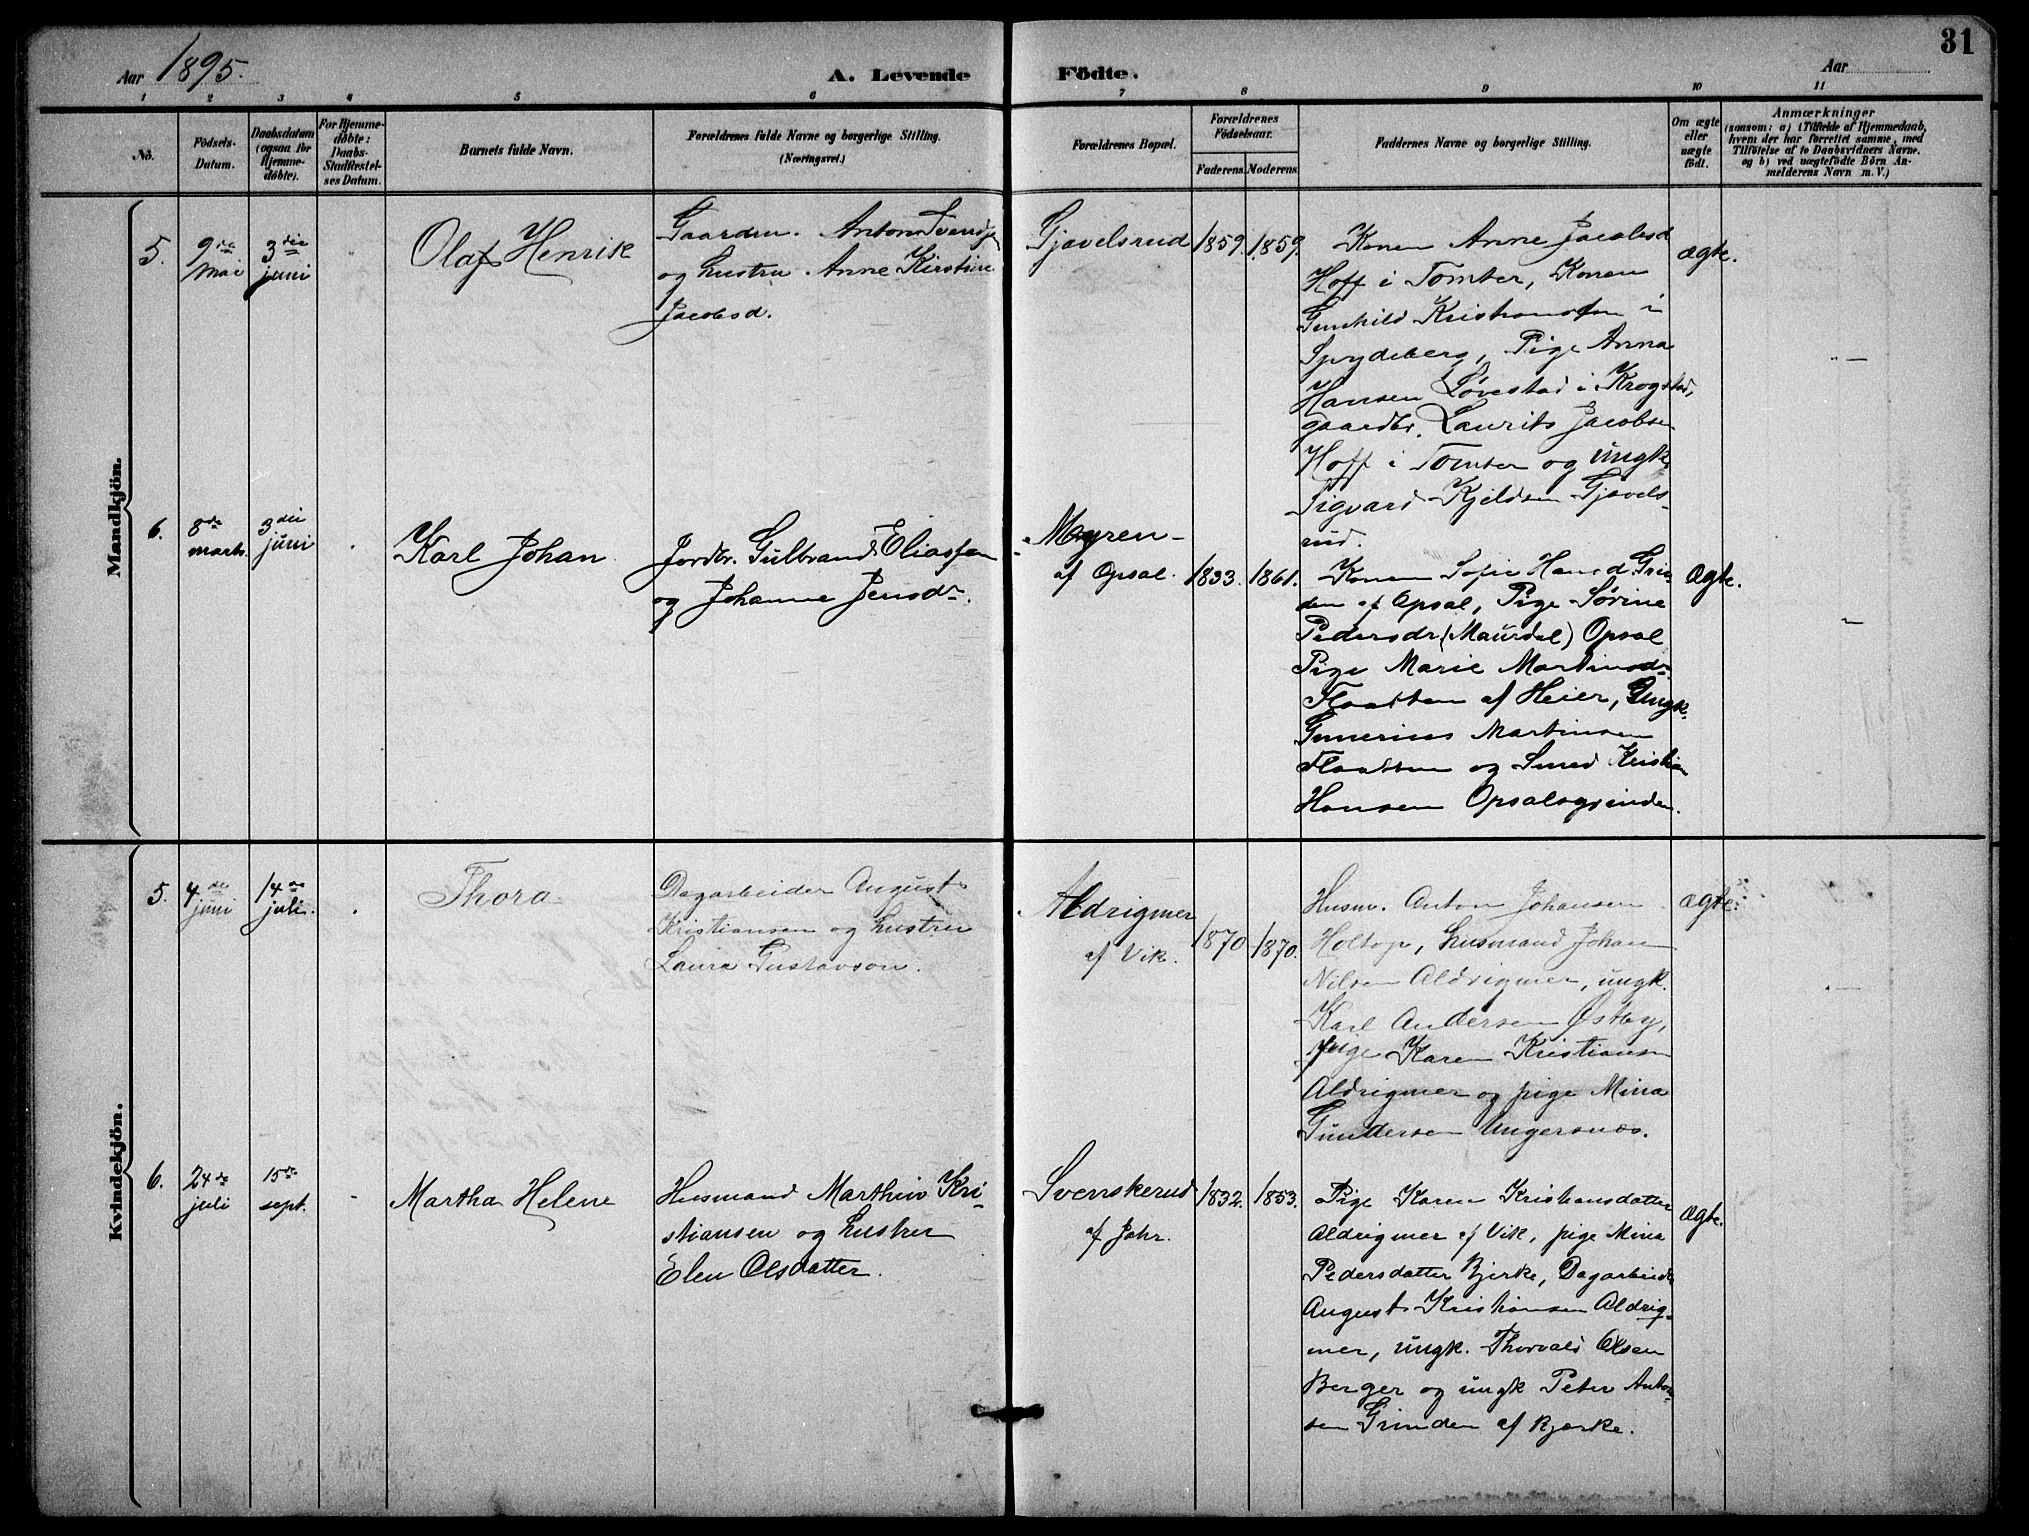 31
Aar 1895.
A. Levende Födte.
Aar
1 2 3 4 5 6 7 8 9 10 11
No.
Födsels-
Datum.
Daabsdatum
(ogsaa for
Hjemme-
döbte).
For Hjemme-
döbte:
Daabs-
Stadfæstel-
ses Datum.
Barnets fulde Navn.
Forældrenes fulde Navne og borgerlige Stilling.
(Næringsvei.)
Forældrenes Bopæl.
Forældrenes
Födselsaar.
Faderens. Moderens.
Faddernes Navne og borgerlige Stilling.
Om ægte
eller
uægte
födt.
Anmærkninger
(saasom: a) i Tilfælde af Hjemmedaab,
hvem der har forrettet samme, med
Tilföielse af to Daabsvidners Navne,
og b) ved uægtefödte Börn An-
melderens Navn m. V.)
Mandkjön.
5.
9de
mai
3die
juni
Olaf Henrik
Gaardm. Anton Svends
og hustru Anne Kirstine
Jacobsd.
Gjævelsrud
1859. 1859.
Konen Anne Jacobsd
Hoff i Tomter, Konen
Gunhild Kristiansen i
Spydeberg, Pige Anna
Hansen Løvestad i Krogstad,
gaardbr. Laurits Jacobsen
Hoff i Tomter og ungk.
Sigvard Kjeldsen Gjævels-
rud.
ægte.
6.
8de
marts.
3die
juni
Karl Johan
Jordbr. Gulbrand Eliassen
og Johanne Jensdr.
Myren-
af Opsal.
1833. 1861.
Konen Sofie Hansd. Grin-
den af Opsal, Pige Sørine
Pedersdr (Maursdal) Opsal
Pige Marie Martinsdr
Flaatten af Heier, Ungk.
Martinsen
Flaatten og Smed Kristian
Hansen Opsalsgrinden.
ægte.
Kvindekjön.
5.
4de
juni
14de
juli.
Thora
Dagarbeider August
Kristiansen og hustru
Laura Gustavson.
Aldrigmer
af Vik.
1870 1870.
Husm. Anton Johansen
Holtop, husmand Johan
Nilsen Aldrigmer, ungk.
Karl Andersen Østby,
pige Karen Kristiansen
Aldrigmer og pige Mina
Gundersen Ungersnæs.
ægte.
6.
24de
juli
15de
sept.
Martha Helene
Husmand Marthin Kri-
stiansen og hustru
Elen Olsdatter.
Svenskerud
af Jahr.
1832. 1853.
Pige Karen Kristiansdatter
Aldrigmer af Vik, pige Mina
Pedersdatter Bjerke, Dagarbeider
August Kristiansen Aldrig-
mer, ungk. Thorvald Olsen
Berger og ungk Peter Anton-
sen Grinden af Bjerke.
ægte.